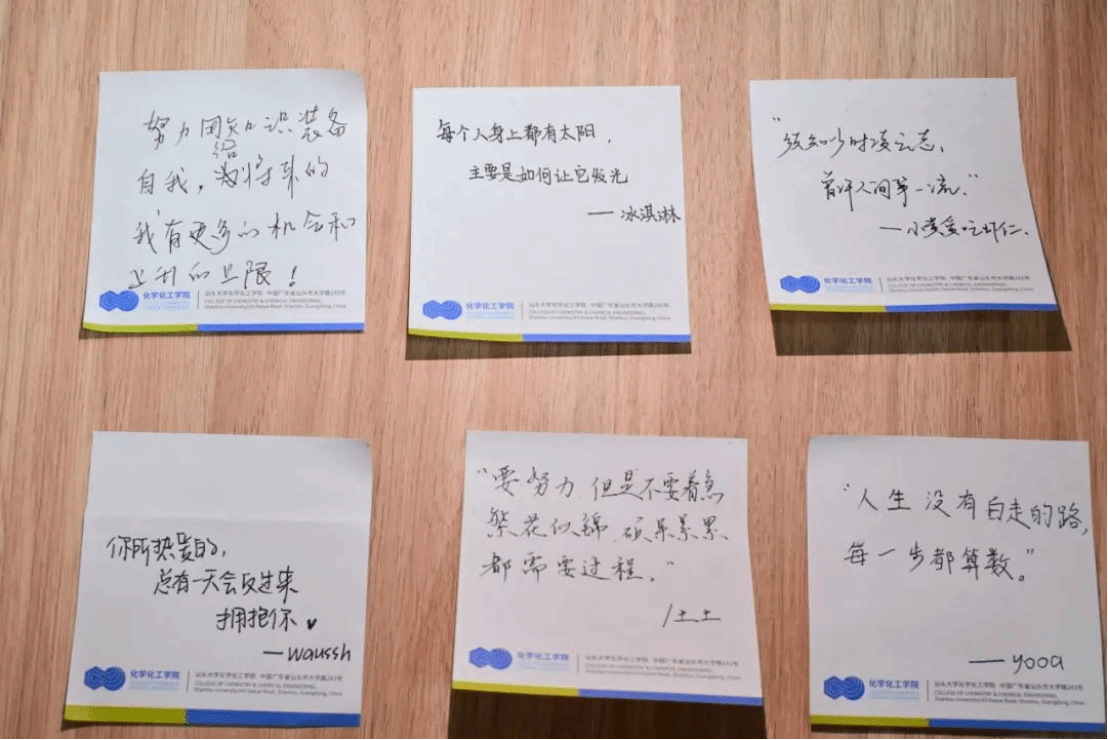 努力用知识装备
自我，给将来的
我有更多的机会和
上升的上限！
化学化工学院
汕头大学化学化工学院 中国广东省汕头市大学路243号
COLLEGE OF CHEMISTRY & CHEMICAL ENGINEERING,
Shantou University243 Daxue Road, Shantou, Guangdong, China
每个人身上都有太阳，
主要是如何让它发光
——冰淇淋
化学化工学院
汕头大学化学化工学院 中国广东省汕头市大学路243号
COLLEGE OF CHEMISTRY & CHEMICAL ENGINEERING,
Shantou University243 Daxue Road, Shantou, Guangdong, China
“须知少时凌云志，
曾许人间第一流.”
——小黄爱吃虾仁.
化学化工学院
汕头大学化学化工学院 中国广东省汕头市大学路243号
COLLEGE OF CHEMISTRY & CHEMICAL ENGINEERING,
Shantou University243 Daxue Road, Shantou, Guangdong, China
你所热爱的，
总有一天会反过来
拥抱你♥
——waussh
化学化工学院
汕头大学化学化工学院 中国广东省汕头市大学路243号
COLLEGE OF CHEMISTRY & CHEMICAL ENGINEERING,
Shantou University243 Daxue Road, Shantou, Guangdong, China
“要努力 但是不要着急
繁花似锦 硕果累累
都需要过程.”
/土土
化学化工学院
汕头大学化学化工学院 中国广东省汕头市大学路243号
COLLEGE OF CHEMISTRY & CHEMICAL ENGINEERING,
Shantou University243 Daxue Road, Shantou, Guangdong, China
“人生没有白走的路，
每一步都算数。”
——yooa
化学化工学院
汕头大学化学化工学院 中国广东省汕头市大学路243号
COLLEGE OF CHEMISTRY & CHEMICAL ENGINEERING,
Shantou University243 Daxue Road, Shantou, Guangdong, China